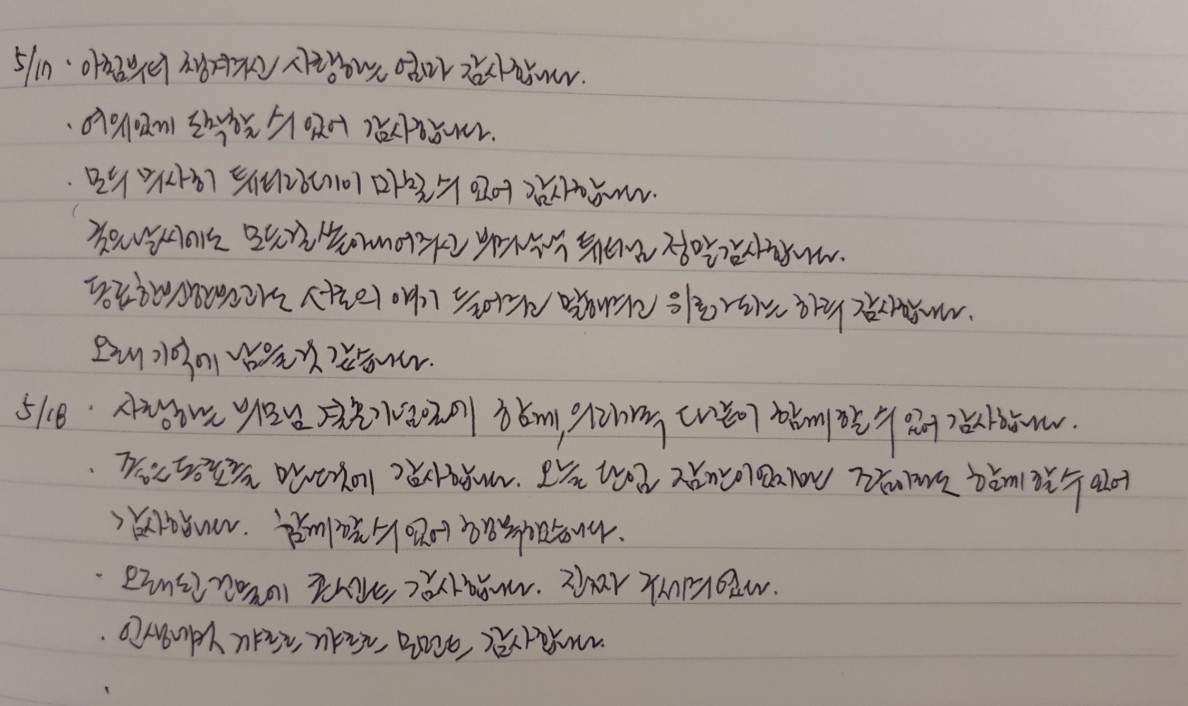 5/17 · 아침부터 챙겨주신 사랑하는 엄마 감사합니다.
· 여유있게 도착할 수 있어 감사합니다.
· 모두 무사히 튜터링데이 마칠 수 있어 감사합니다.
궂은날씨에도 모든걸 쏟아내어주신 튜터님 정말 감사합니다.
동료한분한분과도 서로의 얘기 들어주고 말해주고 위로가되는 하루 감사합니다.
오래 기억에 남을것 같습니다.
5/18 · 사랑하는 부모님 결혼기념일에 함께, 우리가족 다같이 함께할 수 있어 감사합니다.
· 좋은동료들을 만난것에 감사합니다. 오늘 모임 잠깐이었지만 조금이라도 함께할 수 있어
감사합니다. 함께할 수 있어 행복했습니다.
· 오래된 건물에 감사합니다. 진짜
· 인생네컷 꺄르르 꺄르르 모먼트 감사합니다.